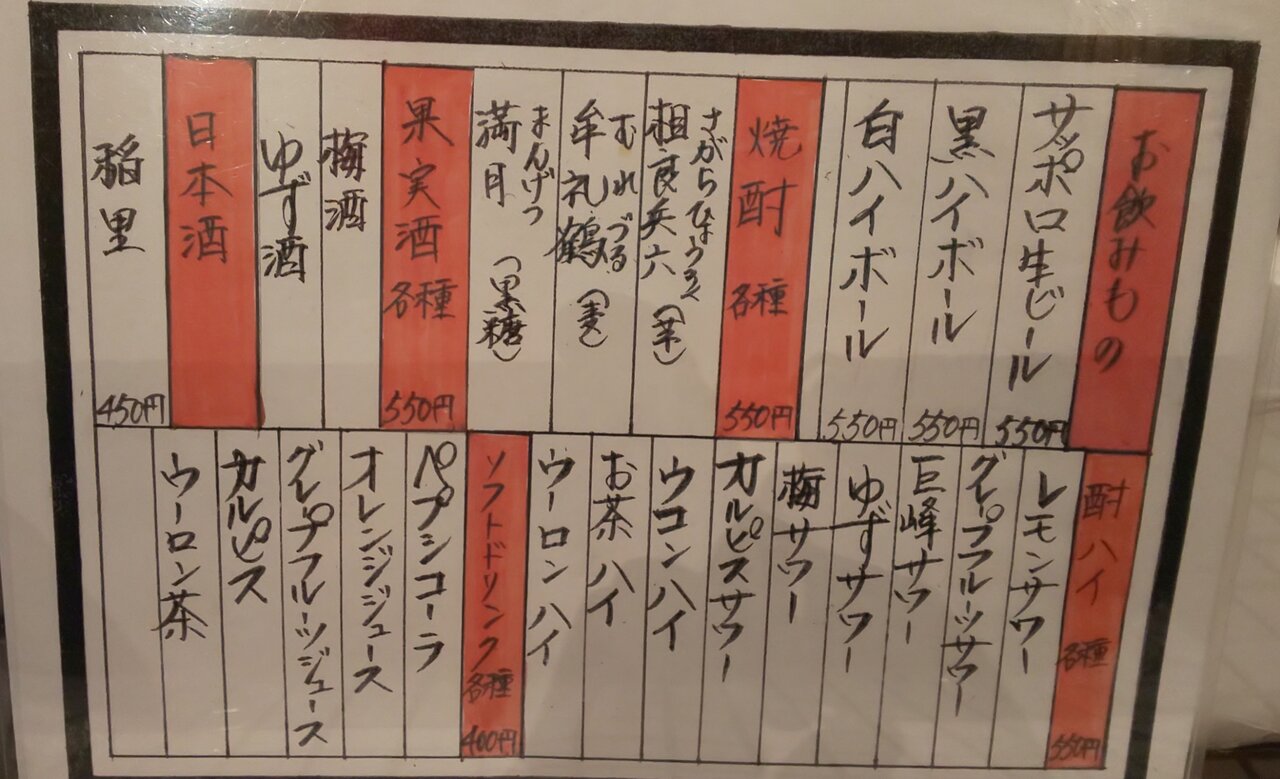 お飲みもの
サッポロ生ビール 550円
黒ハイボール 550円
白ハイボール 550円
焼酎 各種 550円
さがらひょうろく
相良兵六(芋)
むれづる
牟礼鶴(麦)
まんげつ
満月(黒糖)
果実酒 各種 550円
梅酒
ゆず酒
日本酒
稲里 450円
酎ハイ 各種 550円
レモンサワー
グレープフルーツサワー
巨峰サワー
ゆずサワー
梅サワー
カルピスサワー
ウコンハイ
お茶ハイ
ウーロンハイ
ソフトドリンク各種 400円
ペプシコーラ
オレンジジュース
グレープフルーツジュース
カルピス
ウーロン茶